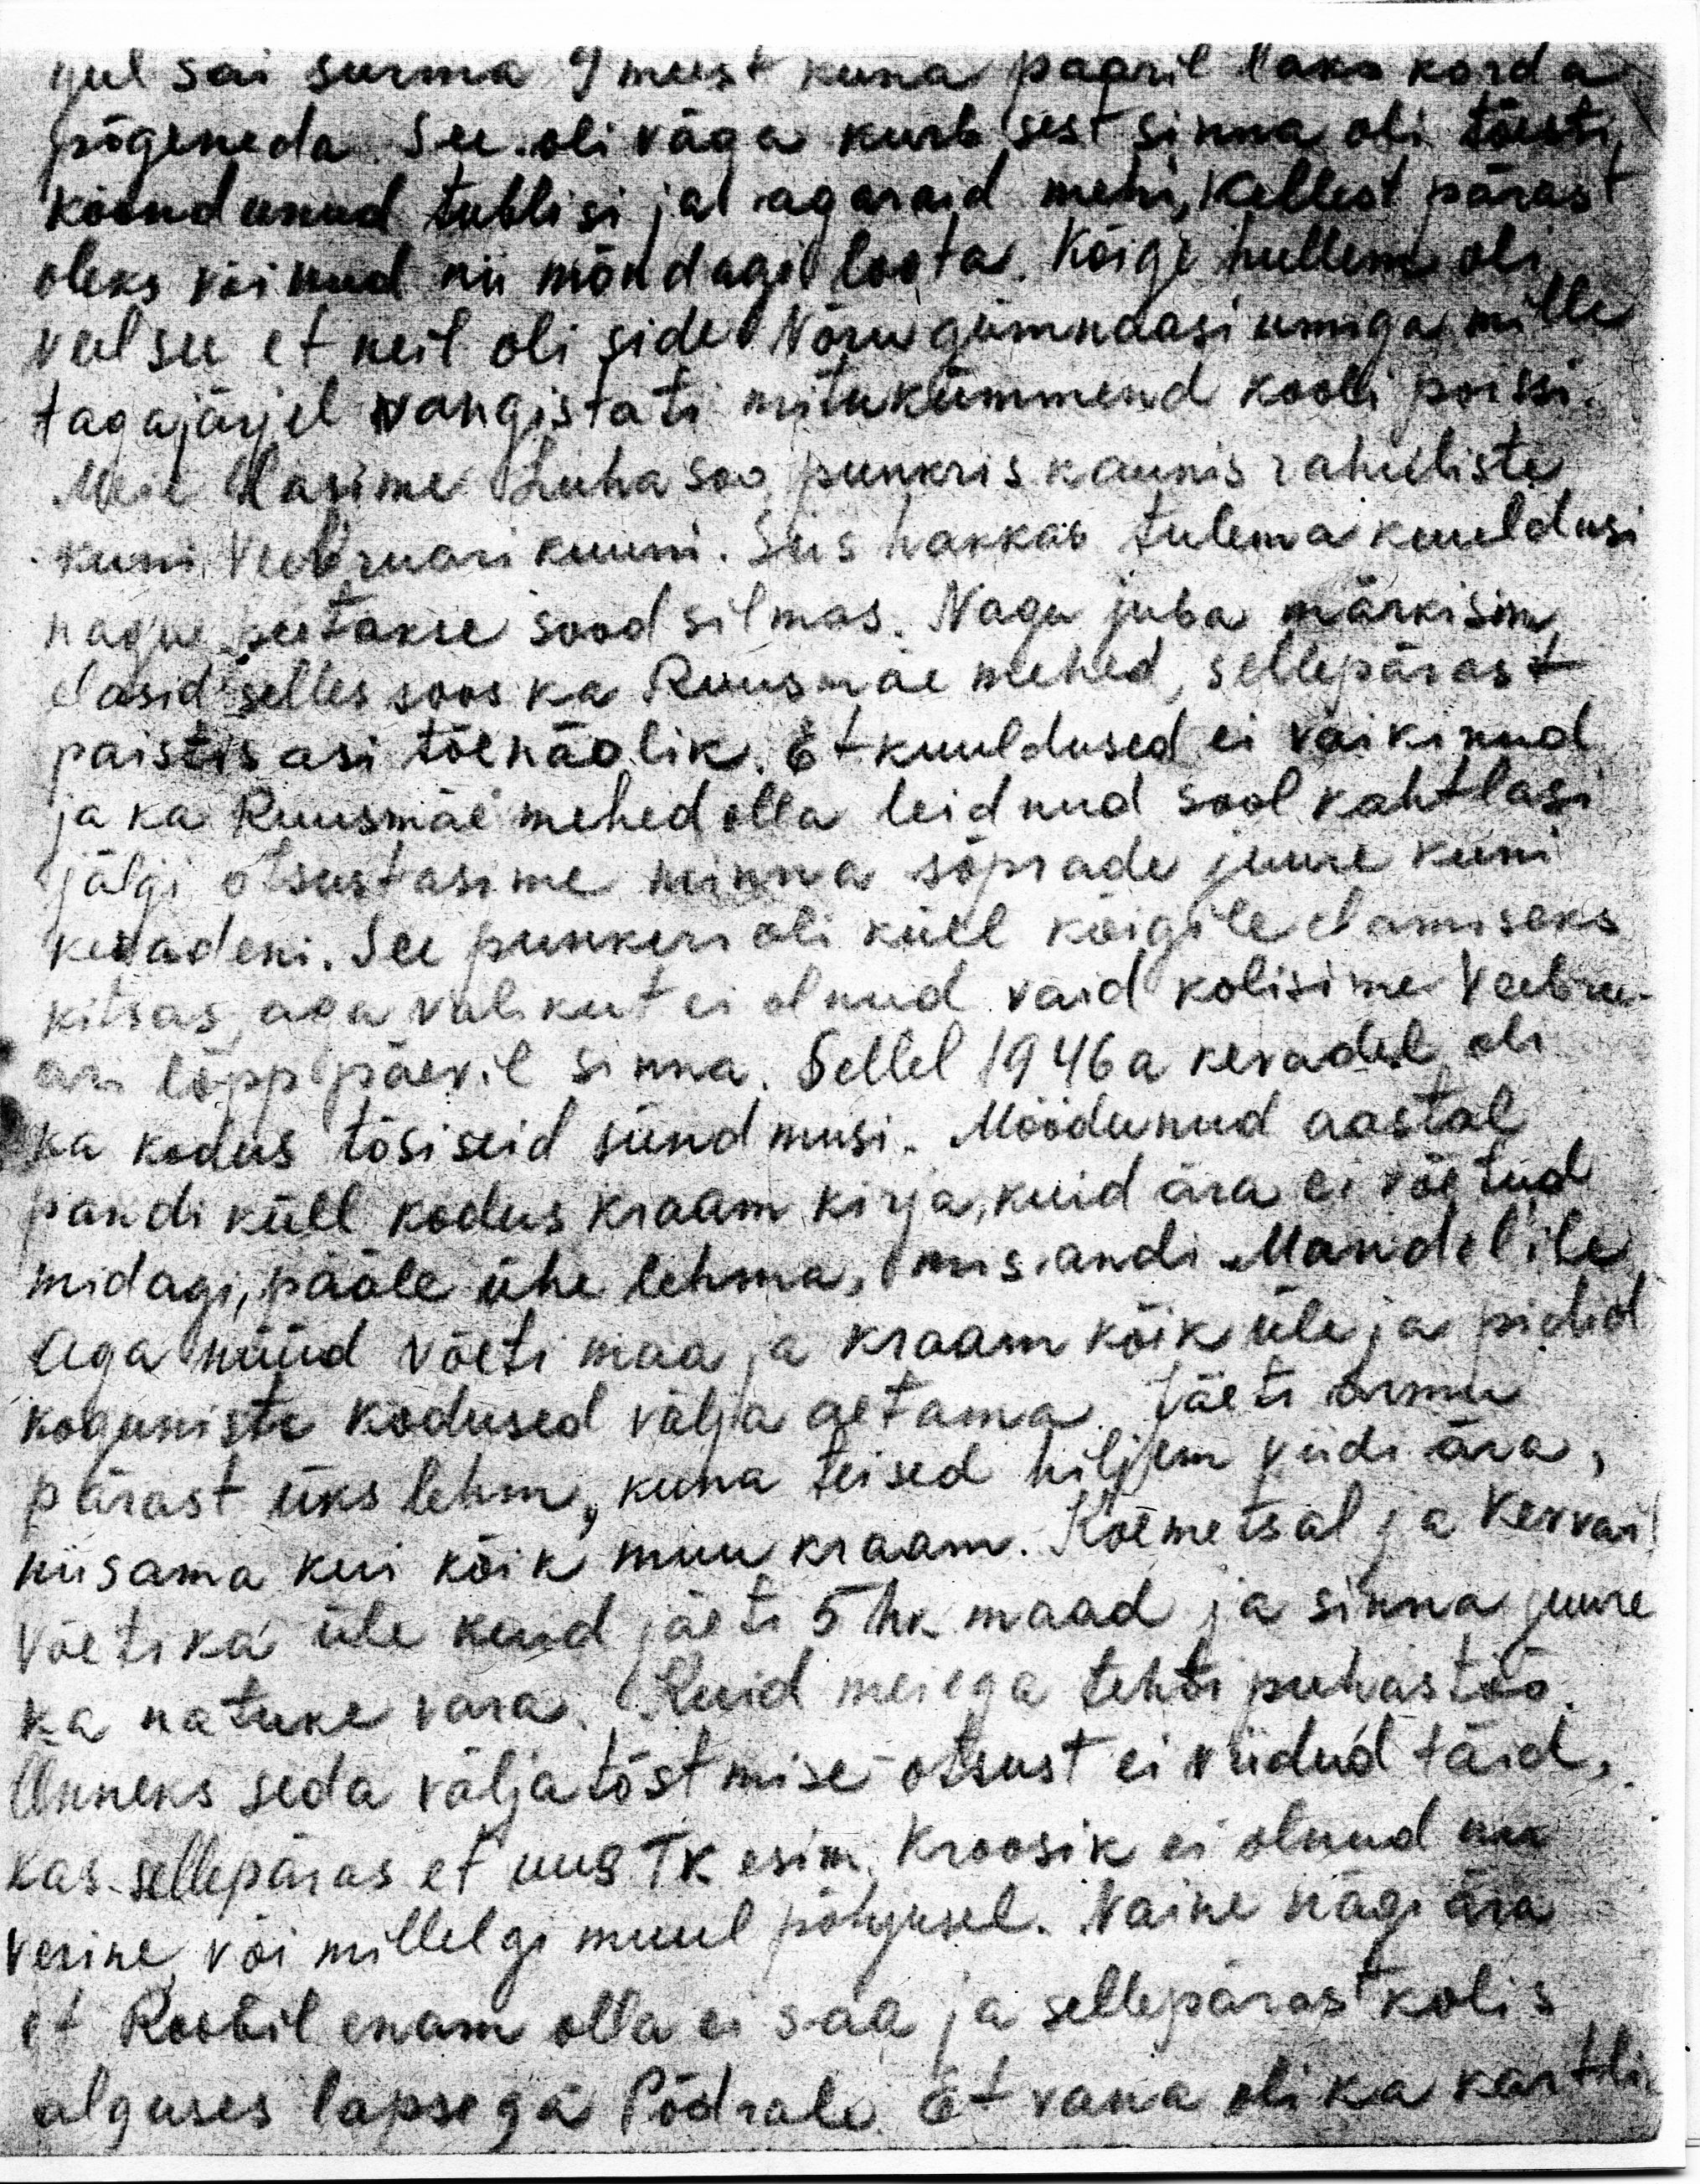 gul sai surma 9 meest kuna paaril läks korda
põgeneda. See oli väga kurb sest sinna oli tõesti
koondunud tublisi ja agaraid mehi, kellest pärast
oleks võinud nii mõndagi loota. Kõige hullem oli
veel see et neil oli side Võru gümnaasiumiga mille
tagajärjel vangistati mitukümmend kooli poissi.
Meie elasime Luhasoo punkris kaunis rahuliste
kuni Veebruari kuuni. Siis hakkas tulema kuuldusi
nagu peetakse sood silmas. Nagu juba märkisin
elasid selles soos ka Ruusmäe mehed, sellepärast
paistis asi tõenäolik. Et kuuldused ei vaikinud
ja ka Ruusmäe mehed olla leidnud sool kahtlasi
jälgi otsustasime minna sõprade juure kuni
kevadeni. See punker oli küll kõigile elamiseks
kitsas, aga valikut ei olnud vaid kolisime Veebru-
ari lõppäevil sinna. Sellel 1946 a kevadel oli
ka kodus tõsiseid sündmusi. Möödunud aastal
pandi küll kodus kraam kirja, kuid ära ei võetud
midagi, pääle ühe lehma, mis andi Mandel'ile
Aga nüüd võeti maa ja kraam kõik üle ja pidid
koguniste kodused välja aetama. Jäeti armu
pärast üks lehm, kuna teised hiljem viidi ära,
niisama kui kõik muu kraam. Kõemetsal ja Kervai
võeti ka üle kuid jäeti 5 hk maad ja sinna juure
ka natuke vara. Kuid meiega tehti puhastöö.
Õnneks seda väljatõstmise otsust ei viidud täid,
kas sellepäras et uus TK esim. Kroosik ei olnud nii
verine, või millelgi muul põhjusel. Naine nägi ära
et Roobil enam olla ei saa ja sellepärast kolis
alguses lapsega Põdrale. Et vana oli ka kartlik